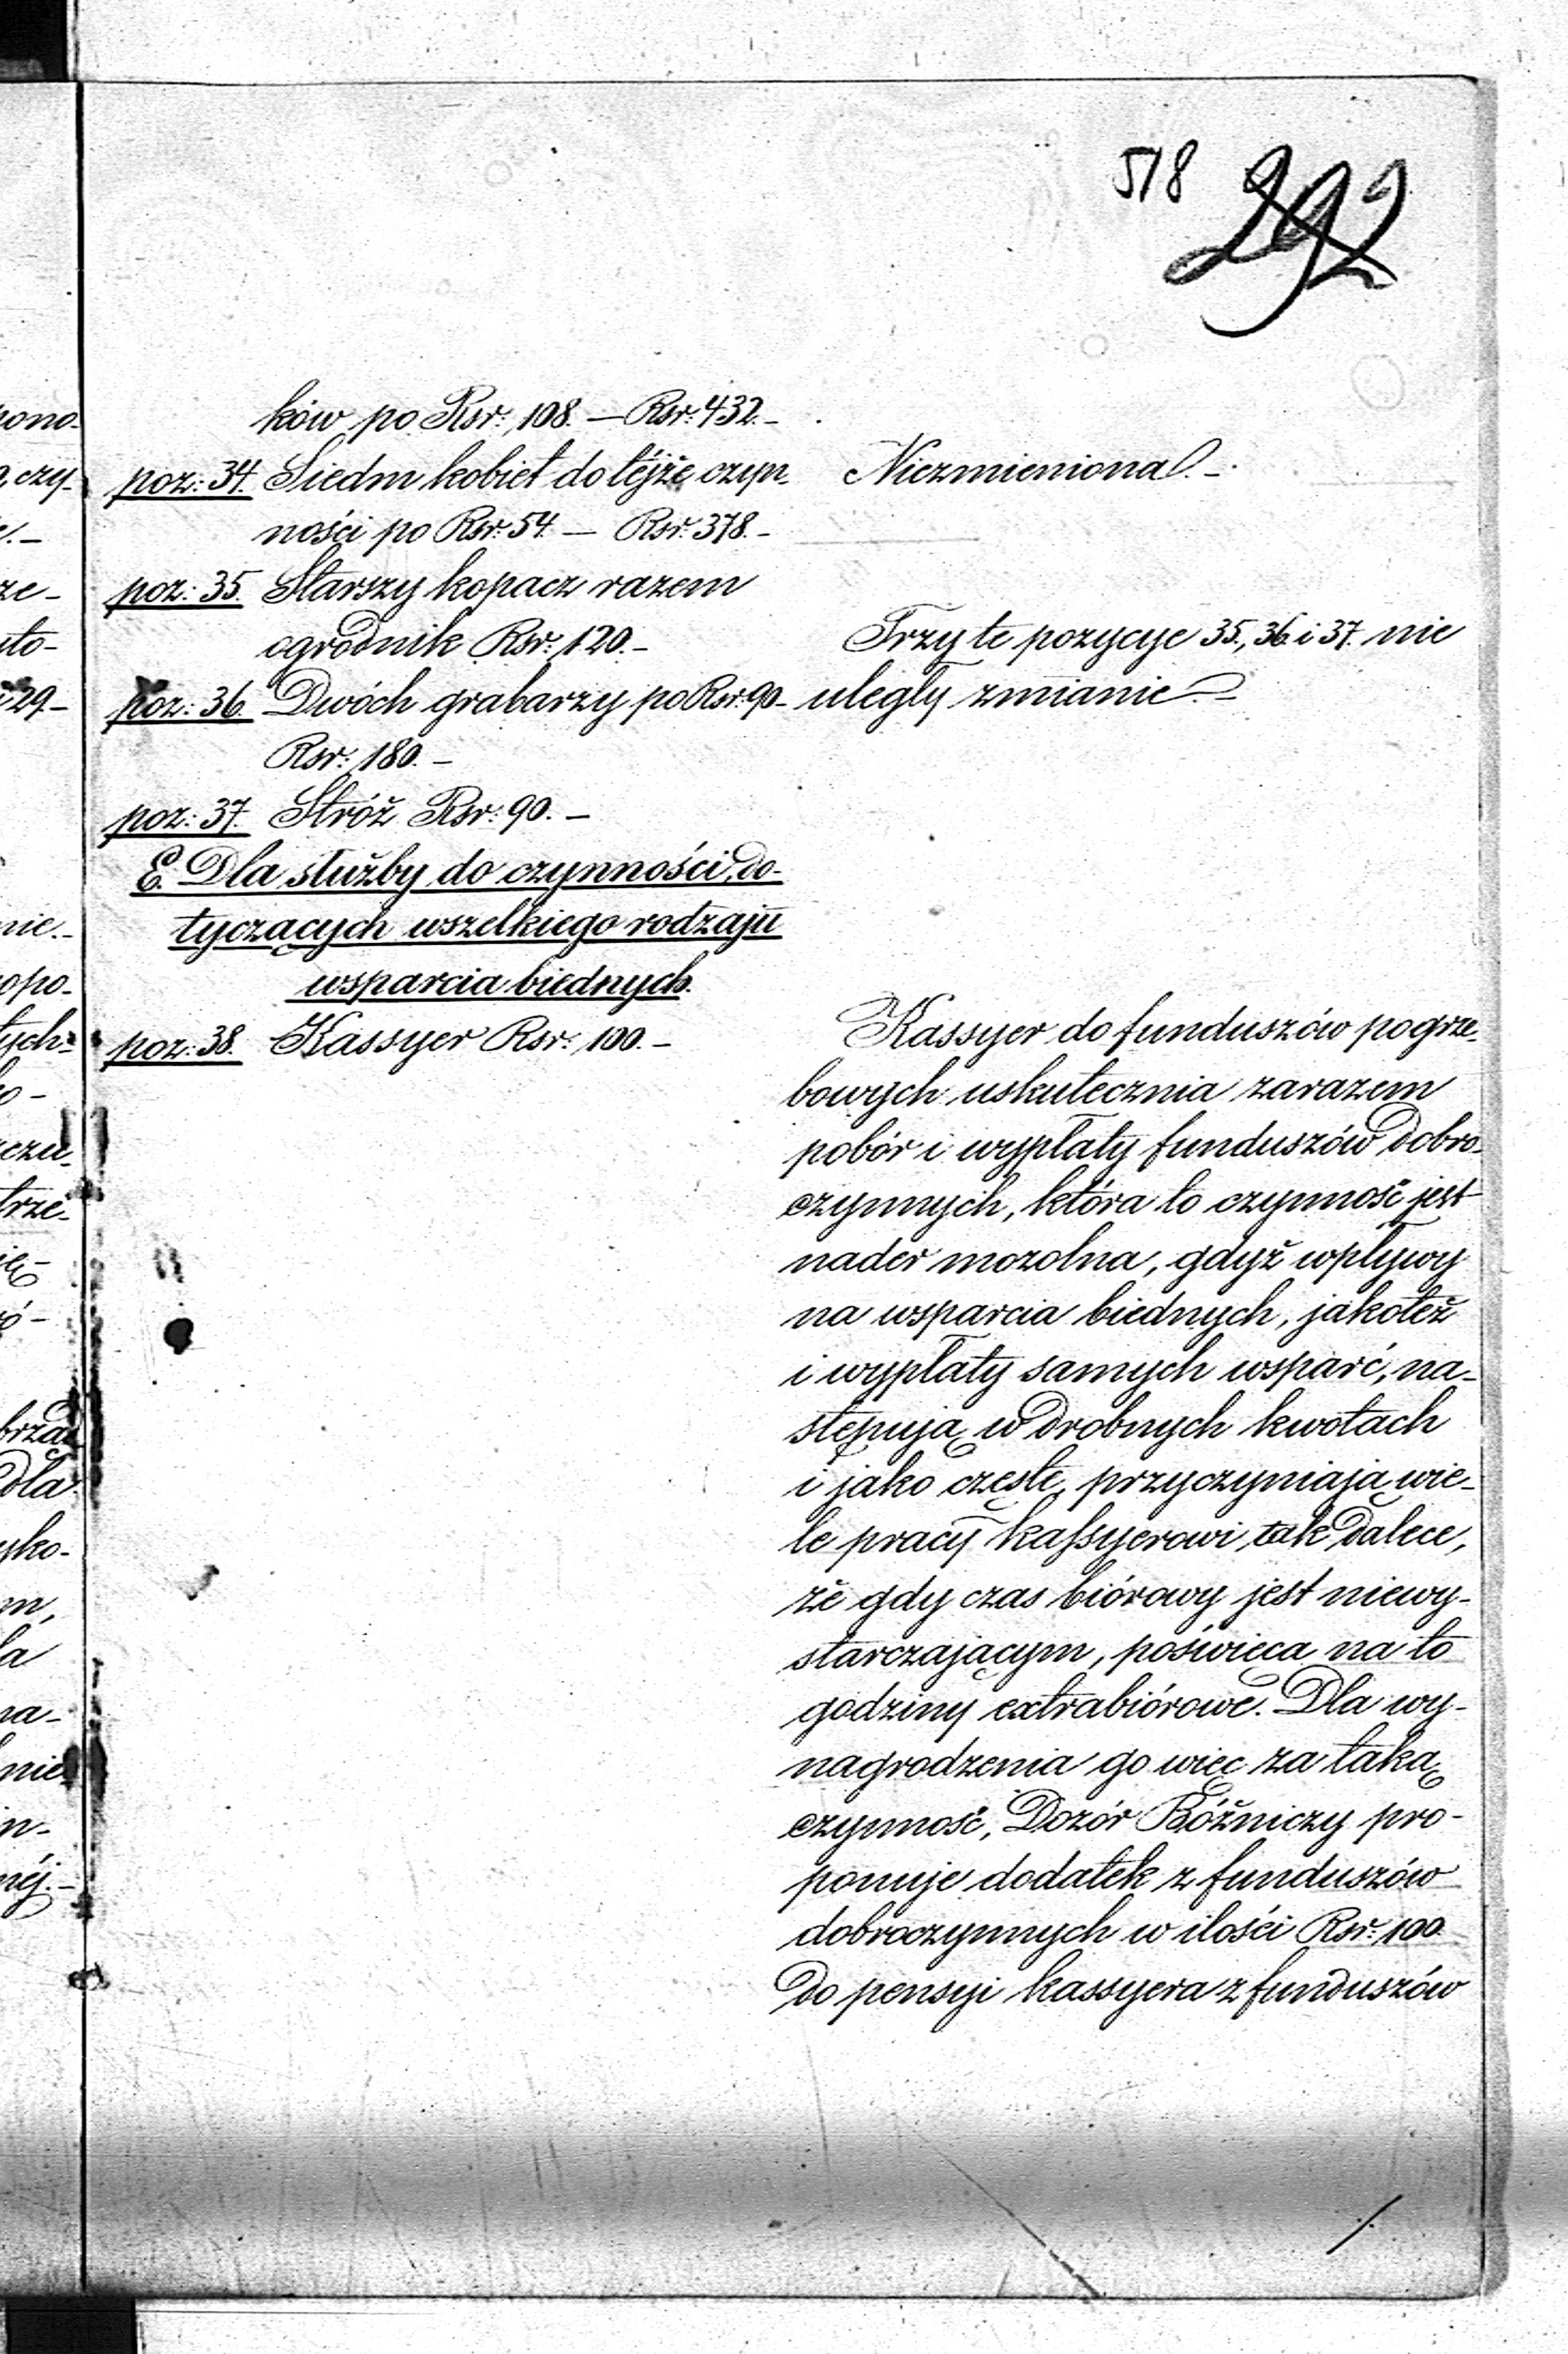 518
292
ków po Rsr: 108. — Rsr: 432.-
poz: 34. Siedm kobiet do téjże czyn-
ności po Rsr: 54. — Rsr: 378.-
poz: 35. Starszy kopacz razem
ogrodnik Rsr: 120.-
poz: 36. Dwóch grabarzy po Rsr: 90-
Rsr: 180.-
poz: 37. Stróż Rsr: 90.-
E. Dla służby do czynności, do-
tyczących wszelkiego rodzaju
wsparcia biednych.
poz: 38. Kassyer Rsr: 100.-
Niezmieniona.-
Trzy te pozycye 35, 36 i 37. nie
uległy zmianie.-
Kassyer do funduszów pogrze-
bowych uskutecznia zarazem
pobór i wypłaty funduszów dobro-
czynnych, która to czynność jest
nader mozolna, gdyż wpływy
na wsparcia biednych, jakoteż
i wypłaty samych wsparć, na-
stępują w drobnych kwotach
i jako częste, przyczyniają wie-
le pracy kassyerowi, tak dalece,
że gdy czas biórowy jest niewy-
starczającym, poświęca na to
godziny extrabiórowe. Dla wy-
nagrodzenia go więc za taką
czynność, Dozór Bóżniczy pro-
ponuje dodatek z funduszów
dobroczynnych w ilości Rsr: 100
do pensyi kassyera z funduszów